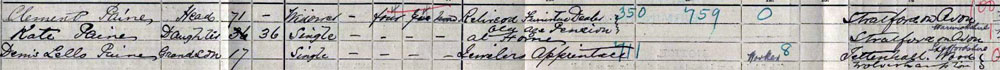 Clement Paine Head 71 - Widower - four five nine Retired Furniture Dealer 350 759 0 Stratford on Avon
Old Age Pension Warwickshire
Kate Paine Daughter 36 36 Single - at Home Stratford on Avon
Denis Lells Paine Grandson 17 Single Jewelers Apprentice Worker 8 Tettenhall Wood
Wolverhampton